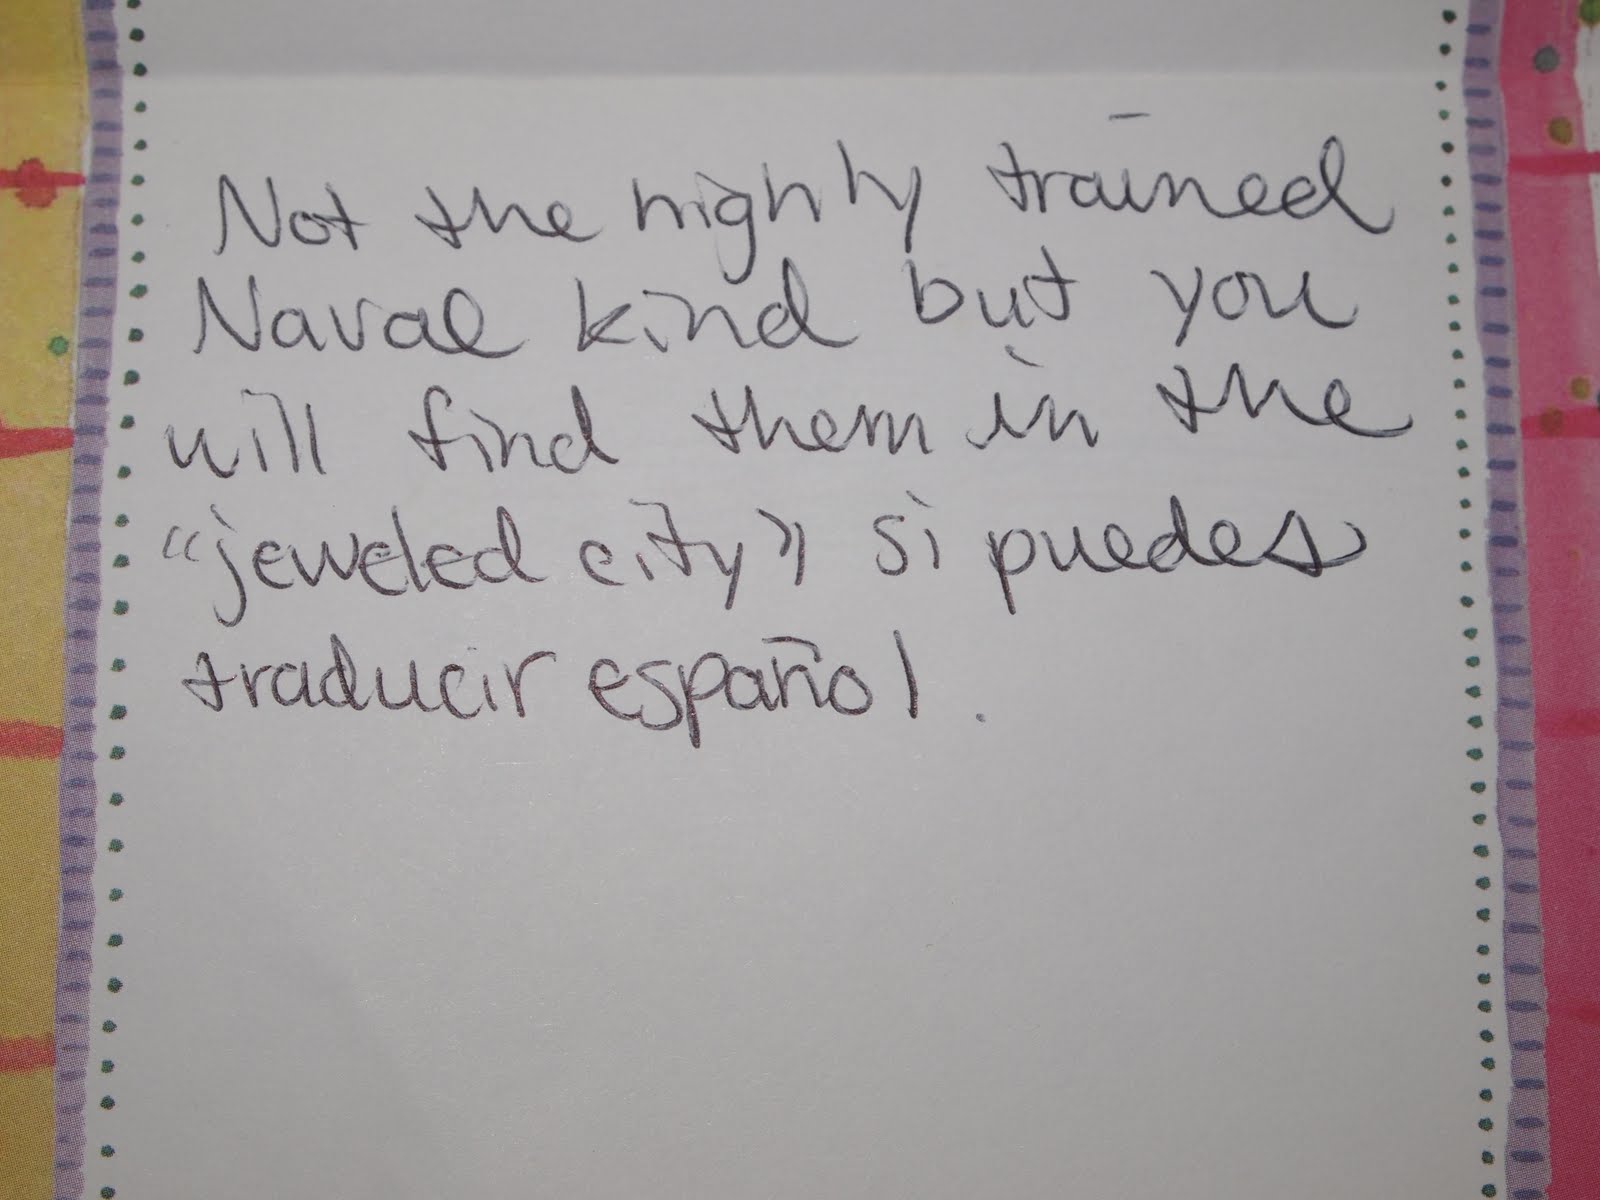 Not the highly trained
Naval kind but you
will find them in the
"jeweled city" si puedes
traducir español.